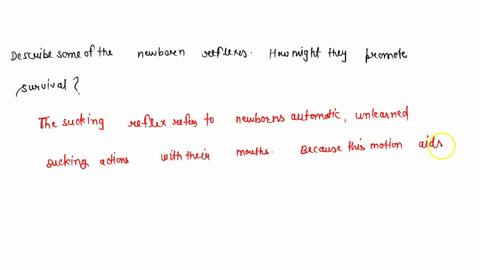 Describe some of the newborn reflexes. How might they promote
survival?
The sucking reflex refers to newborns automatic, unlearned
sucking actions with their mouths. Because this motion aids